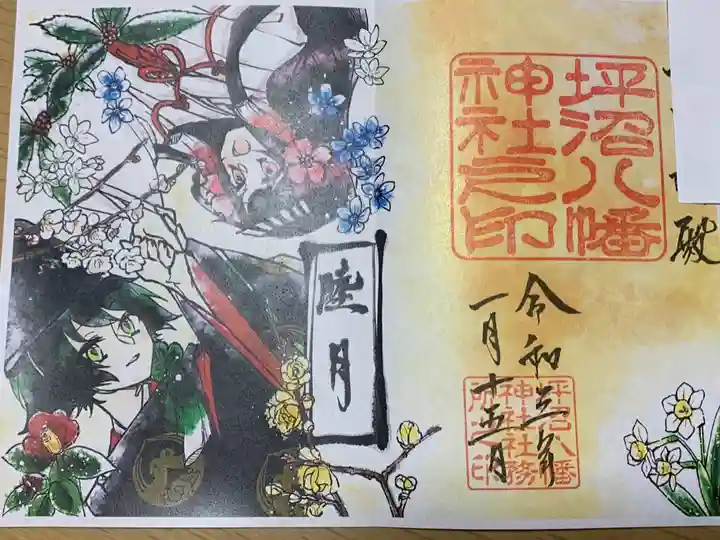 殿
坪沼八幡
神社之印
令和三年
一月十三日
坪沼八幡
神社社務
所之印
睦月